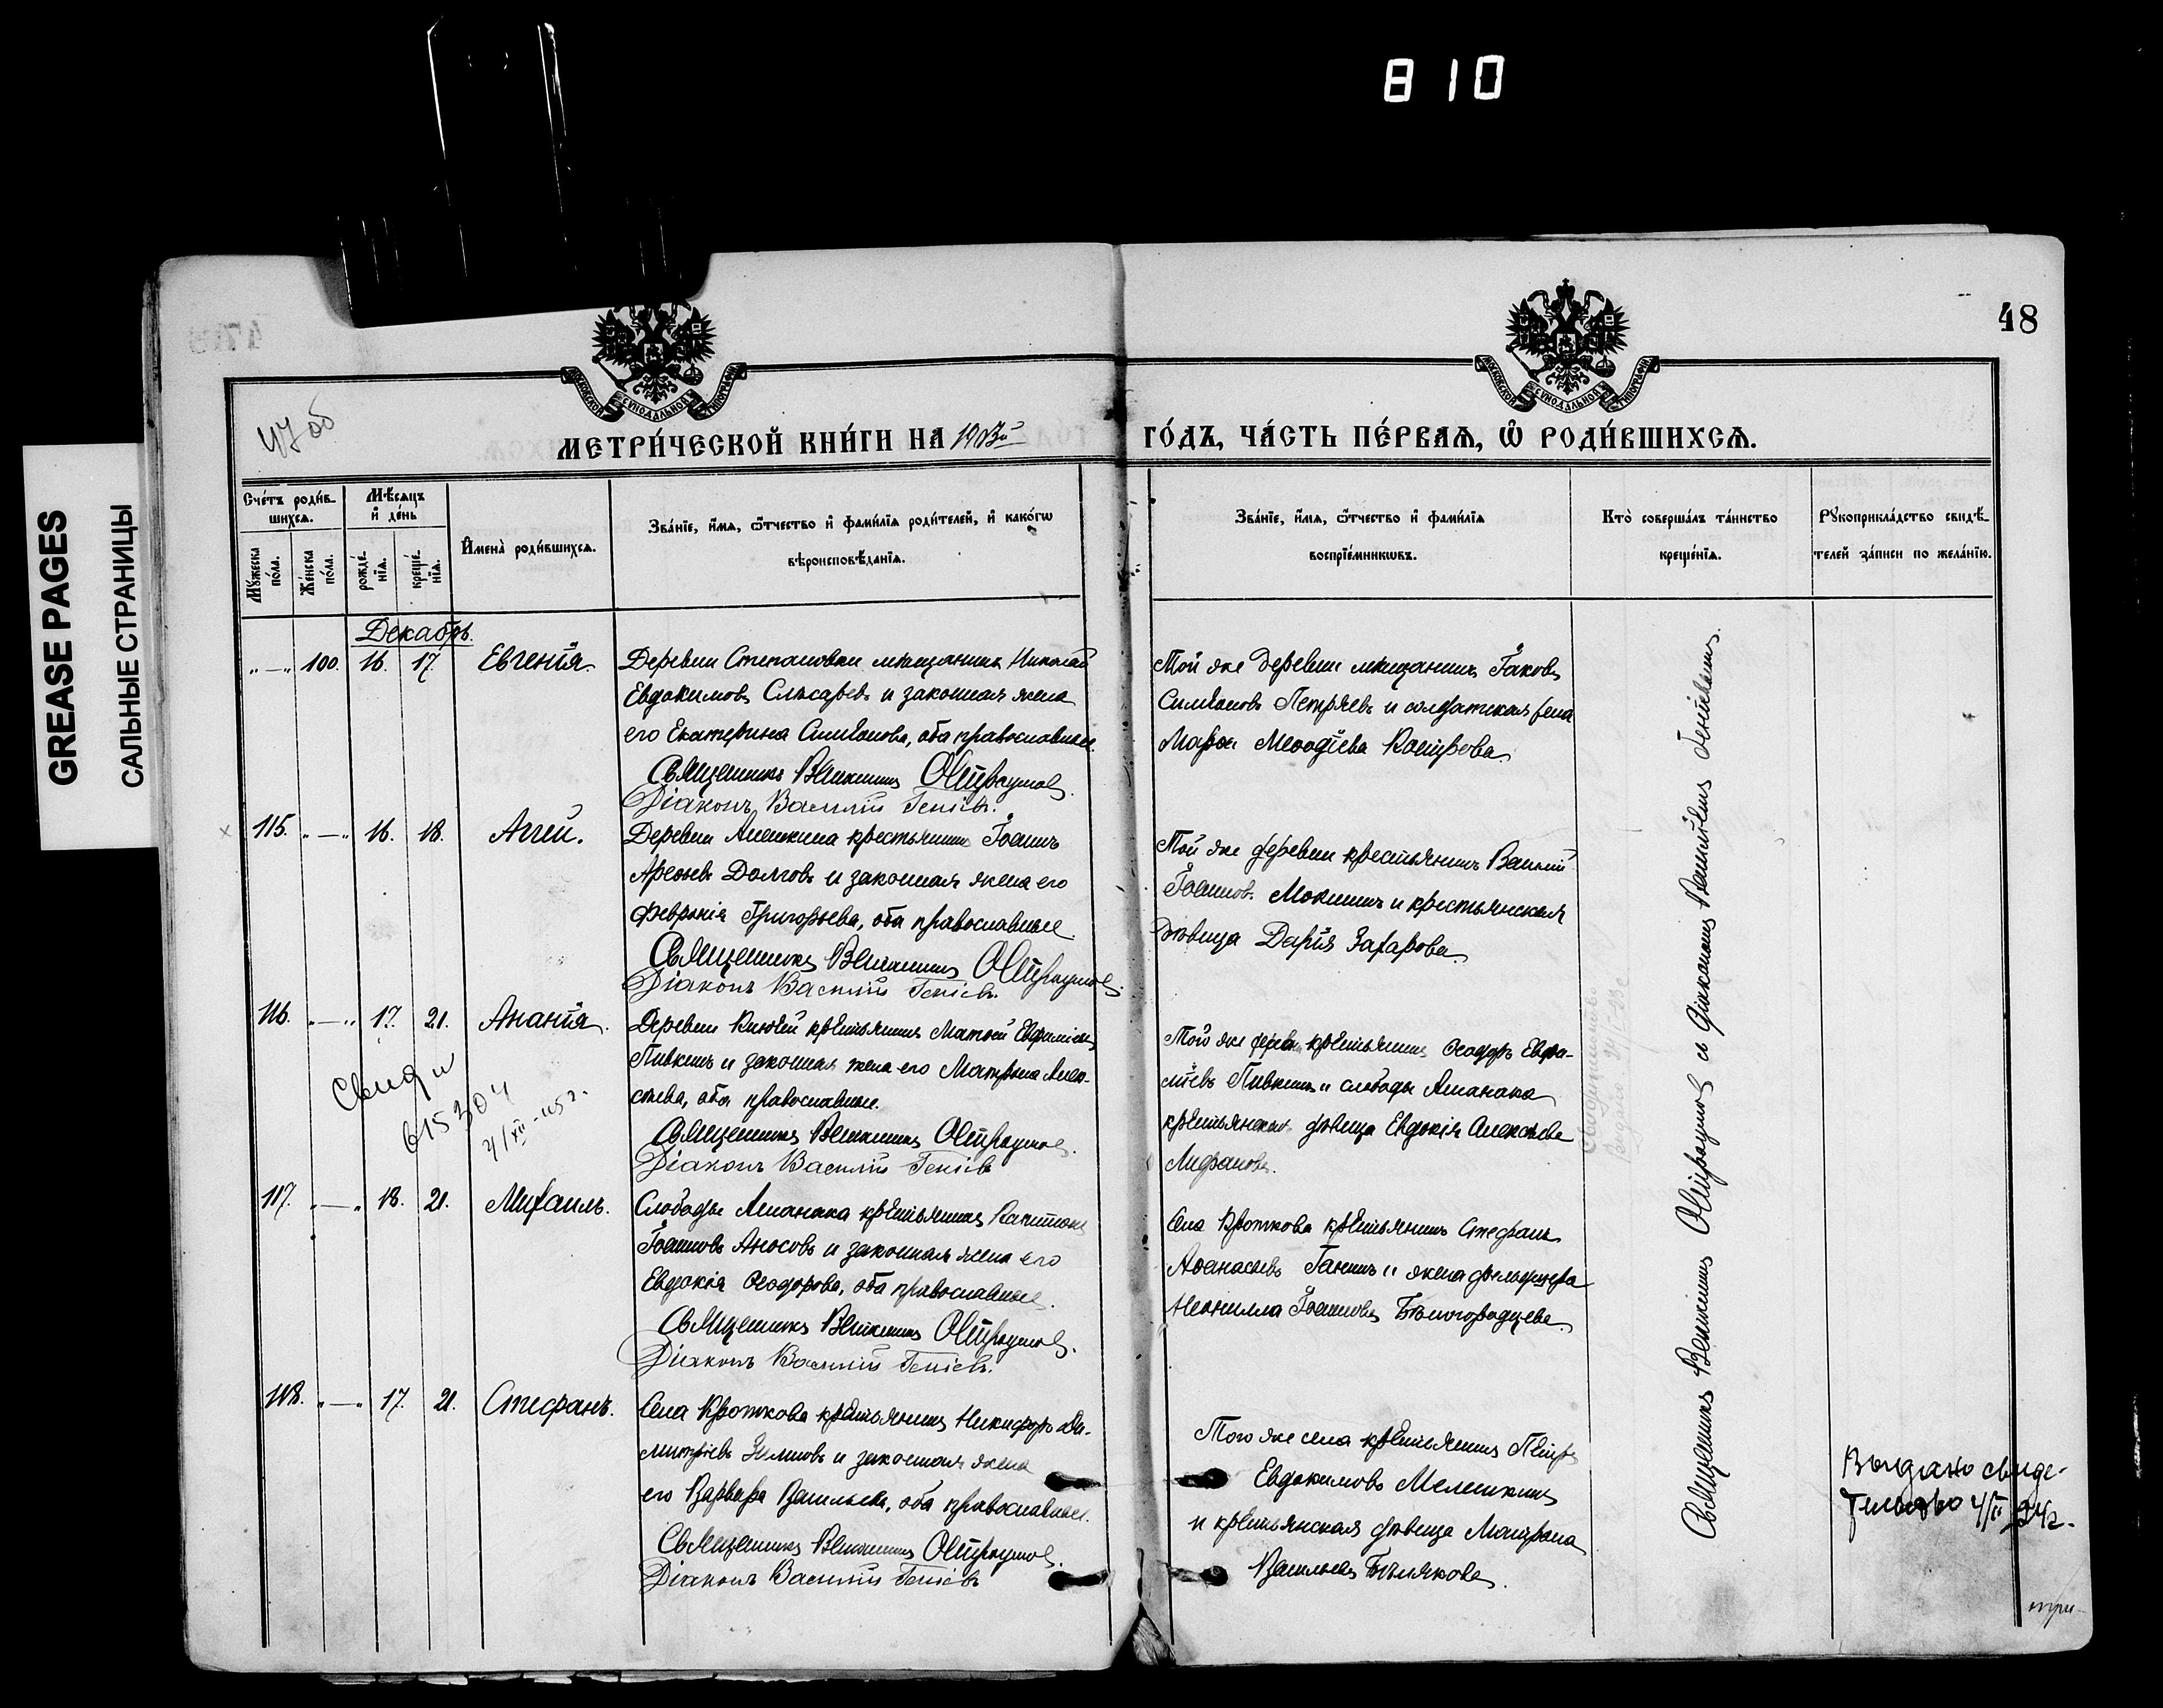 810
GREASE PAGES
САЛЬНЫЕ СТРАНИЦЫ
48
47об
МЕТРИ́ЧЕСКОЙ КНИ́ГИ НА 1903й ГО́ДЪ, ЧА́СТЬ ПЕ́РВАѦ, Ѡ҆ РОДИ́ВШИХСѦ.
Сче́тъ роди́в-
шихсѧ.
Мꙋжеска по́ла.
Же́нска по́ла.
Мѣ́сѧцъ
и҆ де́нь
рожде́-
нїѧ.
креще́-
нїѧ.
И҆мена̀ роди́вшихсѧ.
Зва́нїе, и҆́мѧ, ѻ҆́тчество и҆ фами́лїѧ роди́телей, и҆ како́гѡ
вѣроисповѣ́данїѧ.
Зва́нїе, и҆́мѧ, ѻ҆́тчество и҆ фами́лїѧ
воспрїе́мникѡвъ.
Кто̀ соверша́лъ та́инство
креще́нїѧ.
Рꙋкоприкла́дство свидѣ́-
телей за́писи по жела́нїю.
Декабрь.
„—„ 100. 16. 17. Евгенія.
Деревни Степановки мѣщанинъ Николай
Евдокимовъ Слѣсаревъ и законная жена
его Екатерина Симеонова, оба православные.
Священникъ Веніаминъ
Діаконъ Василій Геніевъ.
Той же деревни мѣщанинъ Іаковъ
Симеоновъ Петряевъ и солдатская жена
Марѳа Меѳодіева
115. „—„ 16. 18. Аггей.
Деревни Алешкина крестьянинъ Іоаннъ
Арефьевъ Долговъ и законная жена его
Февронія Григорьева, оба православные.
Священникъ Веніаминъ
Діаконъ Василій Геніевъ.
Той же деревни крестьянинъ Василій
Іоанновъ Мокшинъ и крестьянская
дѣвица Дарія Захарова.
116. „—„ 17. 21. Ананія.
Деревни крестьянинъ Матѳей Евфиміевъ
Пивкинъ и законная жена его Матрона Алек-
сѣева, оба православные.
Священникъ Веніаминъ
Діаконъ Василій Геніевъ
Той же деревни крестьянинъ Ѳеодоръ Евфи-
міевъ Пивкинъ и слободы
крестьянская дѣвица Евдокія Алексѣева
615304
117. „—„ 18. 21. Михаилъ.
Слободы крестьянинъ Капитонъ
Іоанновъ Аносовъ и законная жена его
Евдокія Ѳеодорова, оба православные.
Священникъ Веніаминъ
Діаконъ Василій Геніевъ.
Села Кроткова крестьянинъ Стефанъ
Аѳанасьевъ Ганинъ и жена фельдшера
Неонилла Іоаннова Бѣлогородцева.
118. „—„ 17. 21. Стефанъ.
Села Кроткова крестьянинъ Никифоръ Ди-
митріевъ Зиминъ и законная жена
его Варвара Васильева, оба православные.
Священникъ Веніаминъ
Діаконъ Василій Геніевъ
Того же села крестьянинъ Петръ
Евдокимовъ Мелешкинъ
и крестьянская дѣвица Матрона
Васильева Бѣлякова.
Священникъ Веніаминъ съ діакономъ Василіемъ Геніевымъ.
Выдано свиде-
тельство 4/II 24г.
три-